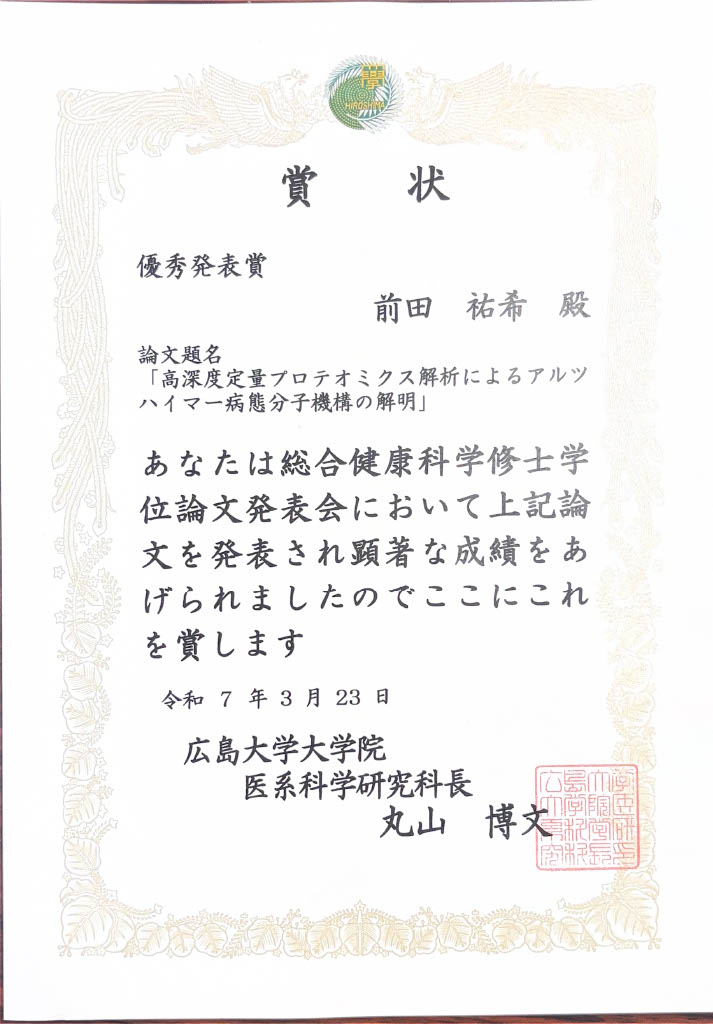 學
HIROSHIMA
賞 状
優秀発表賞
前田 祐希 殿
論文題名
「高深度定量プロテオミクス解析によるアルツ
ハイマー病態分子機構の解明」
あなたは総合健康科学修士学
位論文発表会において上記論
文を発表され顕著な成績をあ
げられましたのでここにこれ
を賞します
令和 7 年 3 月 23 日
広島大学大学院
医系科学研究科長
丸山 博文